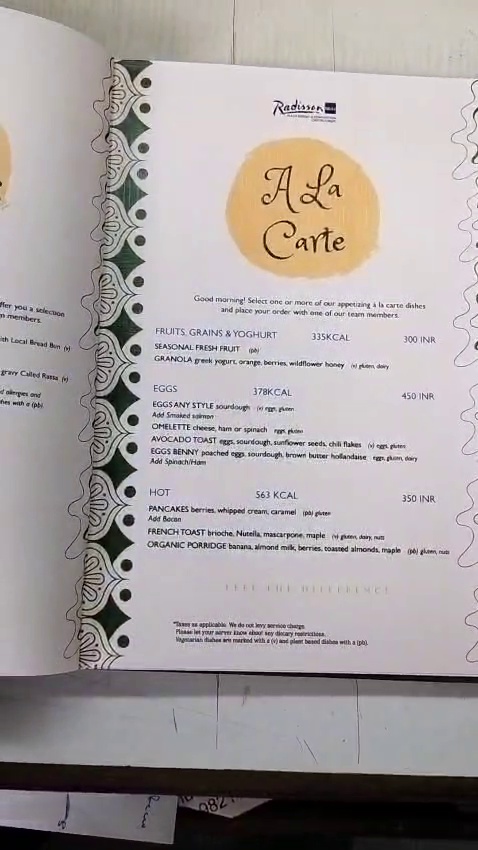 ffer you a selection
members.
ith Local Bread Bun (v)
gravy Called Rassa (v)
allergies and
hes with a (pb).
Radisson
A La
Carte
Good morning! Select one or more of our appetizing à la carte dishes
and place your order with one of our team members.
FRUITS, GRAINS & YOGHURT 335KCAL 300 INR
SEASONAL FRESH FRUIT (pb)
GRANOLA greek yogurt, orange, berries, wildflower honey (v) gluten, dairy
EGGS 378KCAL 450 INR
EGGS ANY STYLE sourdough (v) eggs, gluten
Add Smoked salmon
OMELETTE cheese, ham or spinach eggs, gluten
AVOCADO TOAST eggs, sourdough, sunflower seeds, chili flakes (v) eggs, gluten
EGGS BENNY poached eggs, sourdough, brown butter hollandaise eggs, gluten, dairy
Add Spinach/Ham
HOT 563 KCAL 350 INR
PANCAKES berries, whipped cream, caramel (pb) gluten
Add Bacon
FRENCH TOAST brioche, Nutella, mascarpone, maple (v) gluten, dairy, nuts
ORGANIC PORRIDGE banana, almond milk, berries, toasted almonds, maple (pb) gluten, nuts
FEEL THE DIFFERENCE
*Taxes as applicable. We do not levy service charge.
Please let your server know about any dietary restrictions.
Vegetarian dishes are marked with a (v) and plant based dishes with a (pb).